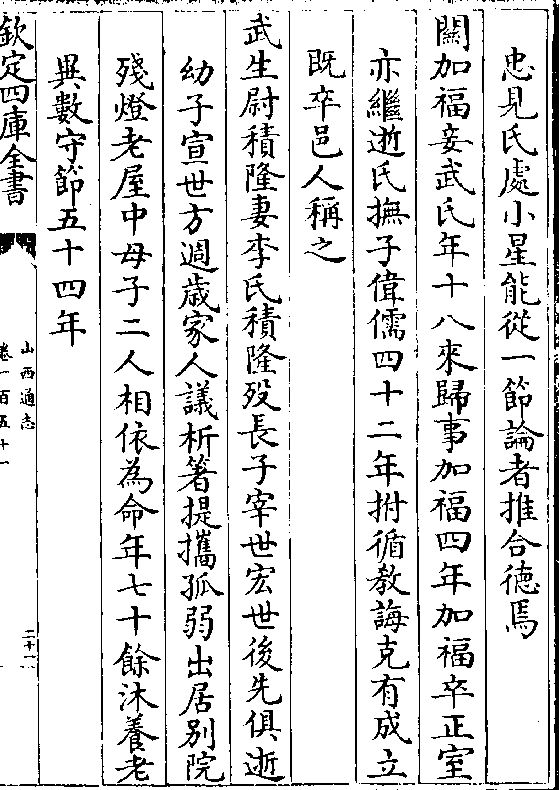 忠見氏處小星能從一節論者推合徳焉
闗加福妾武氏年十八來歸事加福四年加福卒正室
亦繼逝氏撫子偉儒四十二年拊循教誨克有成立
既卒邑人稱之
武生尉積隆妻李氏積隆殁長子宰世宏世後先俱逝
幼子宣世方週歳家人議析箸提攜孤弱出居別院
殘燈老屋中母子二人相依為命年七十餘沐養老
異數守節五十四年
欽定四庫全書
山西通志
卷一百五十一